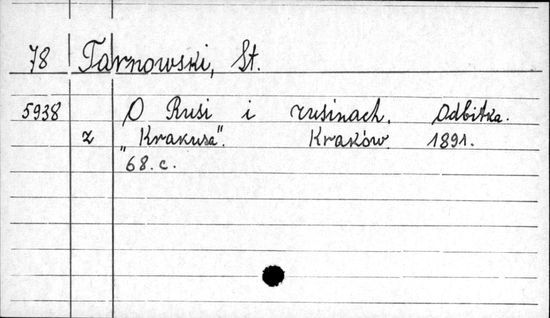 78 Tarnowski, St.
5938 O Rusi i rusinach. Odbitka.
z "Krakusa". Kraków. 1891.
68.c.